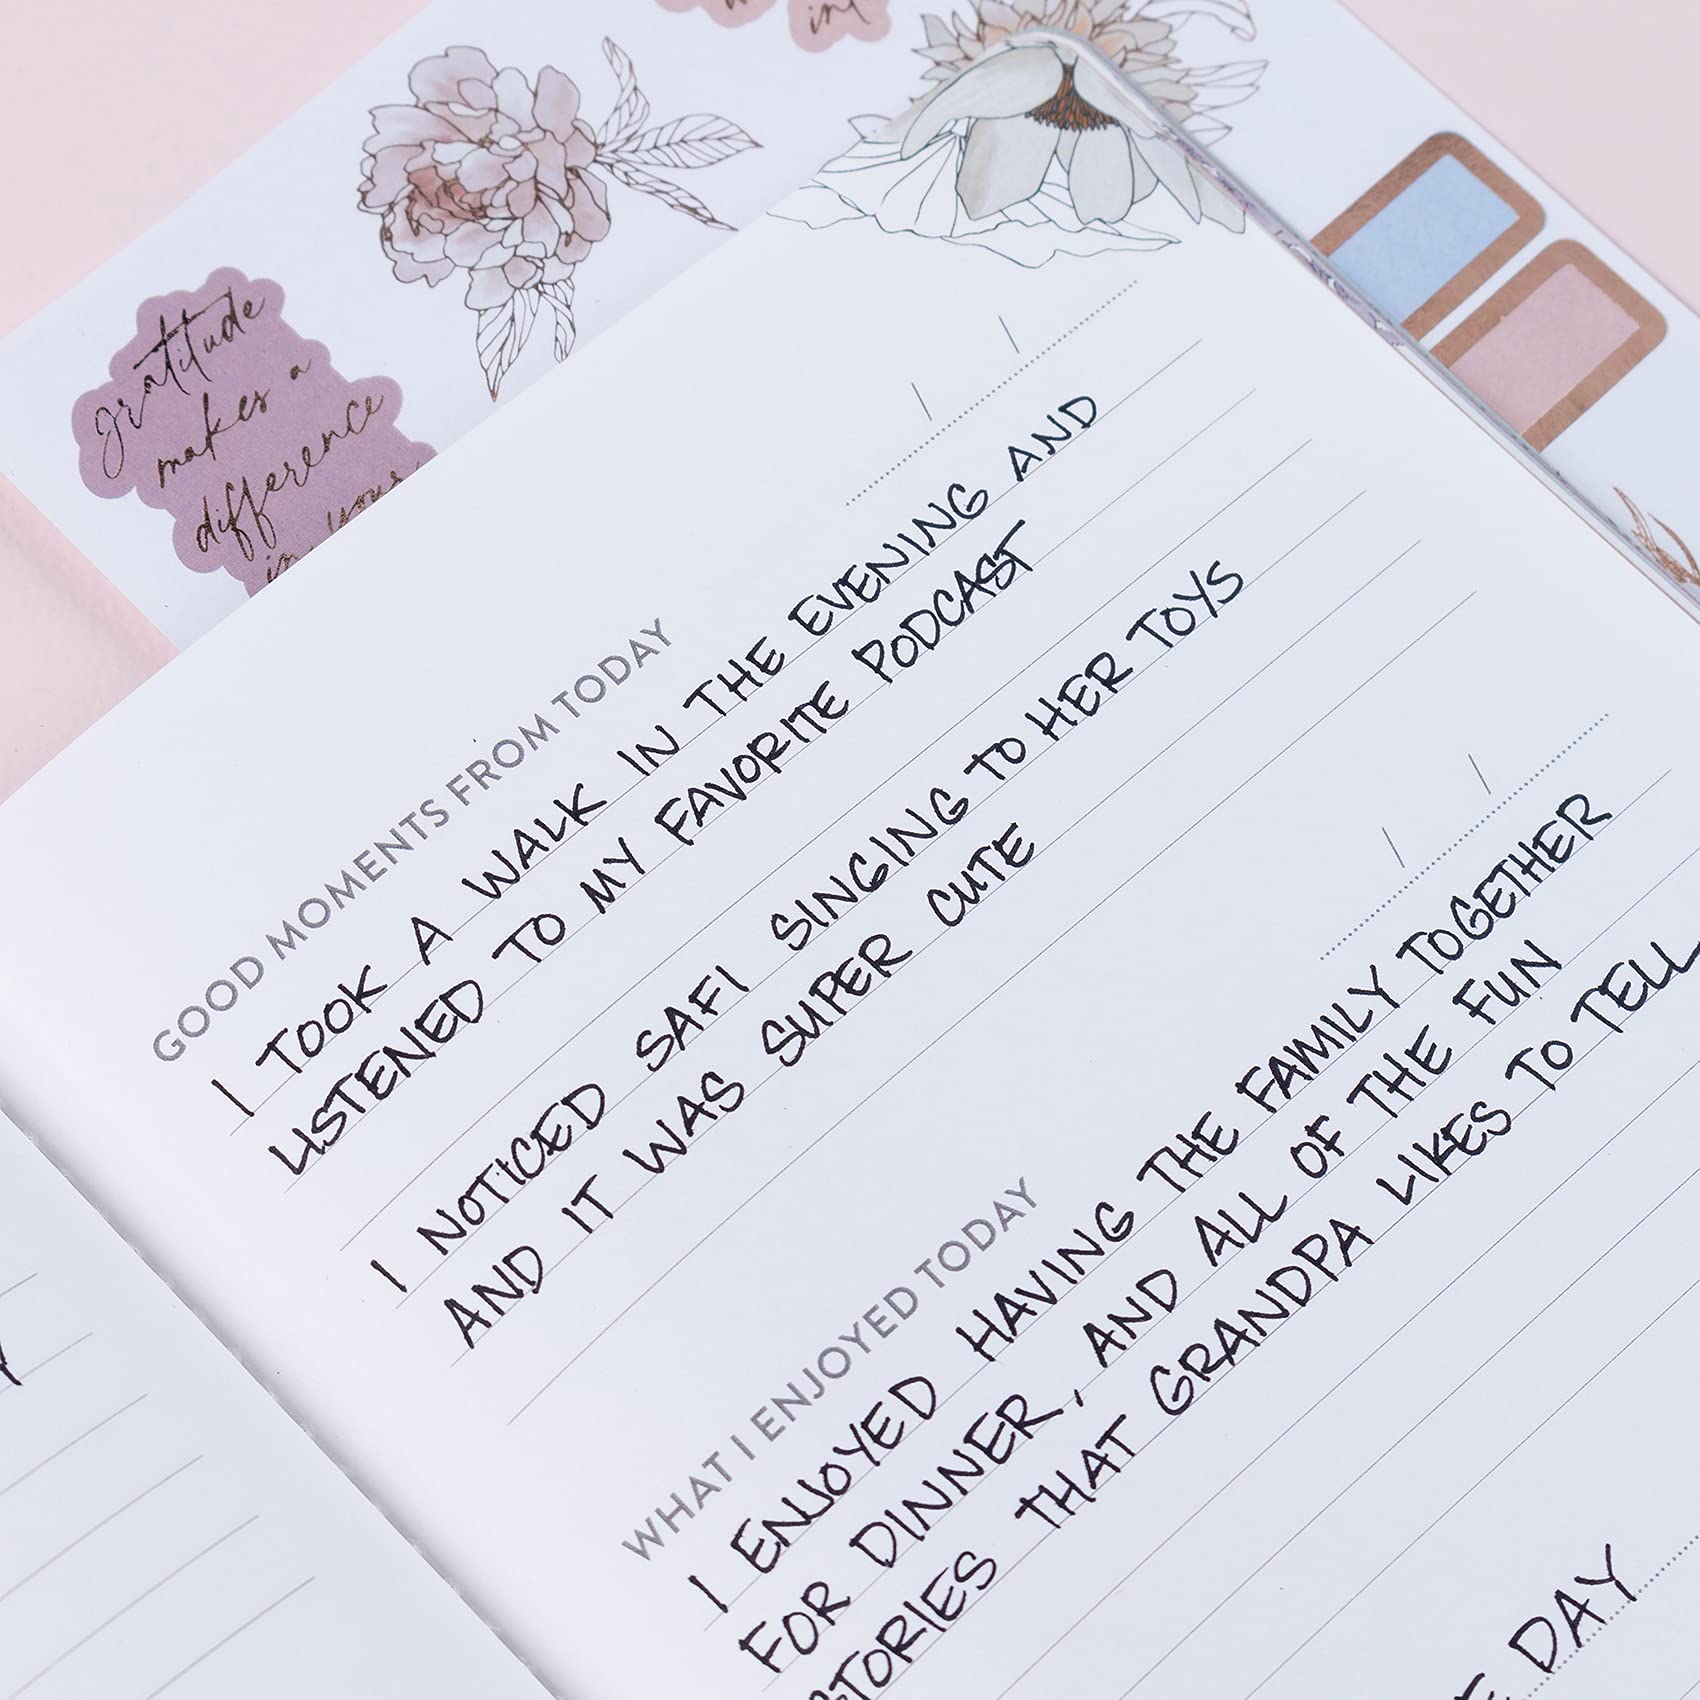 gratitude
makes a
difference
in your
GOOD MOMENTS FROM TODAY
I TOOK A WALK IN THE EVENING AND
LISTENED TO MY FAVORITE PODCAST
I NOTICED SAFI SINGING TO HER TOYS
AND IT WAS SUPER CUTE
WHAT I ENJOYED TODAY
I ENJOYED HAVING THE FAMILY TOGETHER
FOR DINNER, AND ALL OF THE FUN
STORIES THAT GRANDPA LIKES TO TELL
DAY